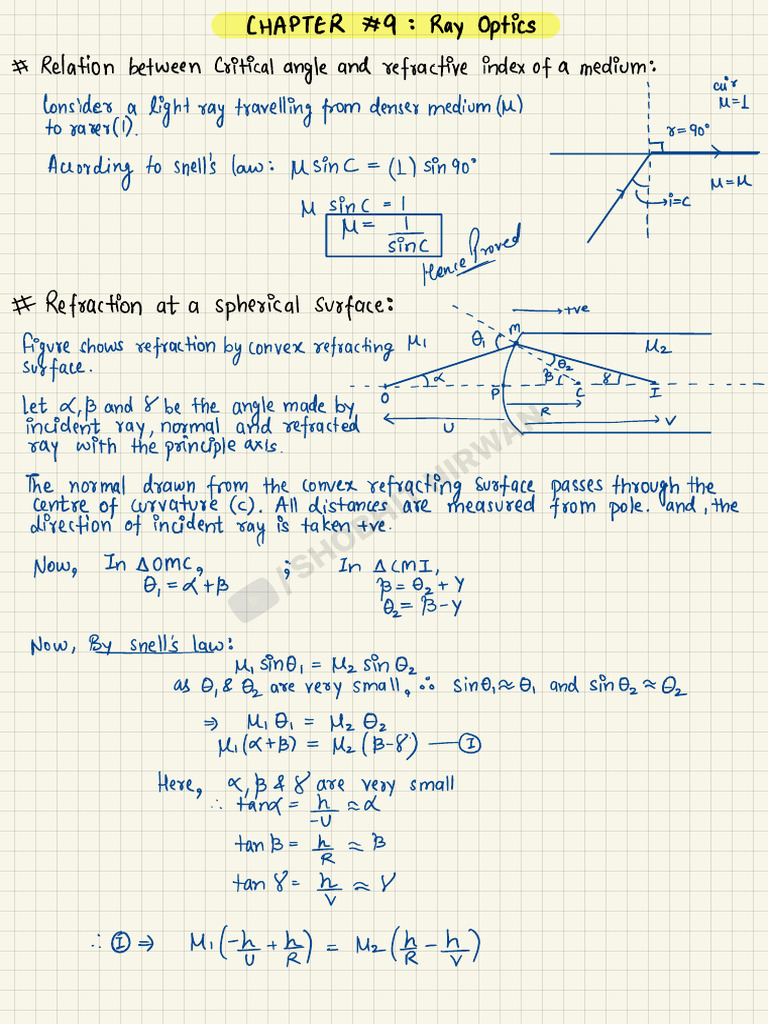 CHAPTER #9 : Ray Optics
# Relation between Critical angle and refractive index of a medium:
Consider a light ray travelling from denser medium (μ)
to rarer (1).
According to snell's law: μ sin C = (1) sin 90°
μ sin C = 1
μ = 1/sin C
Hence Proved
air
μ=1
r=90°
μ=μ
i=C
# Refraction at a spherical surface:
figure shows refraction by convex refracting
surface.
let α, β and γ be the angle made by
incident ray, normal and refracted
ray with the principle axis.
+ve
μ1 θ1 M μ2
θ2
α β γ
O P C I
R
U V
The normal drawn from the convex refracting surface passes through the
centre of curvature (c). All distances are measured from pole. and, the
direction of incident ray is taken +ve.
Now, In ΔOMC, ; In ΔCMI,
θ1 = α+β β = θ2 + γ
θ2 = β-γ
Now, By snell's law:
μ1 sinθ1 = μ2 sin θ2
as θ1 & θ2 are very small, ∴ sinθ1 ≈ θ1 and sinθ2 ≈ θ2
⇒ μ1 θ1 = μ2 θ2
μ1(α+β) = μ2(β-γ) — I
Here, α, β & γ are very small
∴ tanα = h/-U ≈ α
tan β = h/R ≈ β
tan γ = h/V ≈ γ
∴ I ⇒ μ1(-h/U + h/R) = μ2(h/R - h/V)
/SHOBHIT NIRWAN